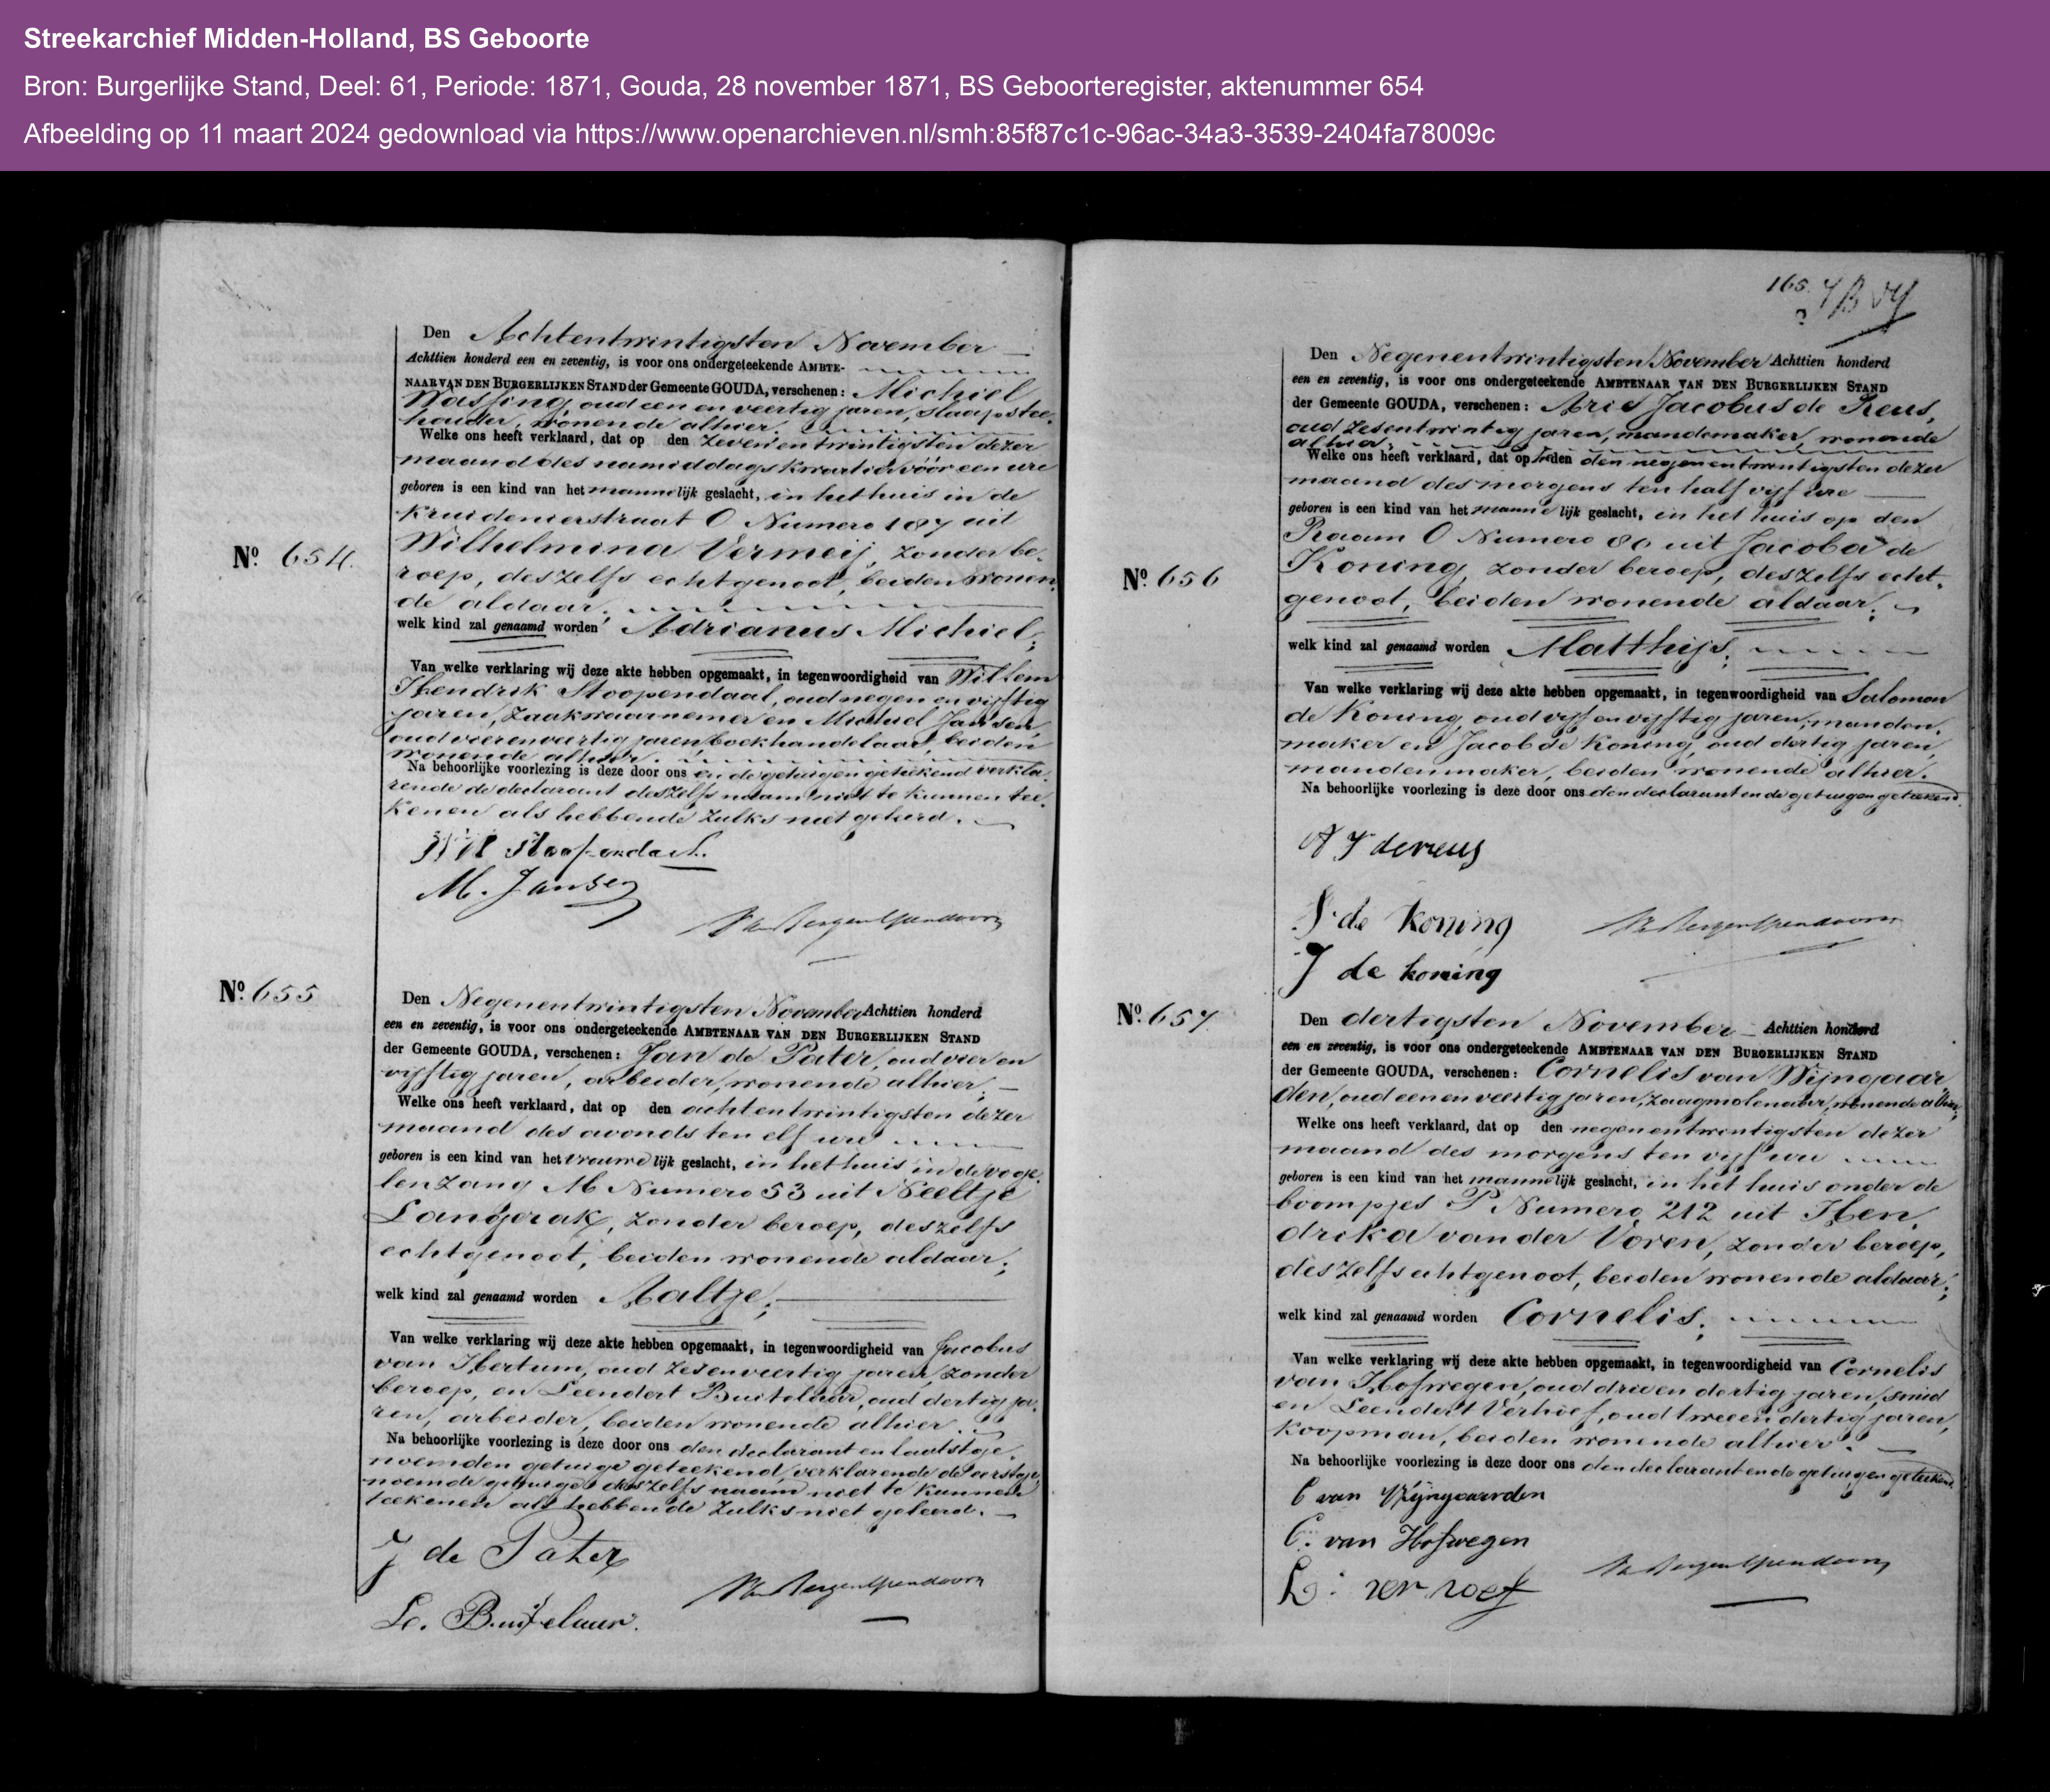 Streekarchief Midden-Holland, BS Geboorte
Bron: Burgerlijke Stand, Deel: 61, Periode: 1871, Gouda, 28 november 1871, BS Geboorteregister, aktenummer 654
Afbeelding op 11 maart 2024 gedownload via https://www.openarchieven.nl/smh:85f87c1c-96ac-34a3-3539-2404fa78009c
Nº 654.
Den Achtentwintigsten November
Achttien honderd een en zeventig, is voor ons ondergeteekende AMBTE-
NAAR VAN DEN BURGERLIJKEN STAND der Gemeente GOUDA, verschenen: Michiel
Wassing, oud een en veertig jaren, slaapstee-
houder, wonende alhier.
Welke ons heeft verklaard, dat op den zevenentwintigsten dezer
maand des namiddags kwartier vóór een ure
geboren is een kind van het mannelijk geslacht, in het huis in de
Kruidenierstraat O Numero 187 uit
Wilhelmina Vermeij, zonder be-
roep, deszelfs echtgenoot, beiden wonen-
de aldaar;
welk kind zal genaamd worden Adrianus Michiel;
Van welke verklaring wij deze akte hebben opgemaakt, in tegenwoordigheid van Willem
Hendrik Stoopendaal, oud negen en vijftig
jaren, zaakwaarnemer en Michiel Jansen,
oud vierenveertig jaren, boekhandelaar, beiden
wonende alhier.
Na behoorlijke voorlezing is deze door ons en de getuigen geteekend verkla-
rende de declarant deszelfs naam niet te kunnen tee-
kenen als hebbende zulks niet geleerd.
WH Stoopendaal.
M. Jansen
Nº 655
Den Negenentwintigsten November Achttien honderd
een en zeventig, is voor ons ondergeteekende AMBTENAAR VAN DEN BURGERLIJKEN STAND
der Gemeente GOUDA, verschenen: Jan de Pater, oud vier en
vijftig jaren, arbeider, wonende alhier;
Welke ons heeft verklaard, dat op den achtentwintigsten dezer
maand des avonds ten elf ure
geboren is een kind van het vrouwelijk geslacht, in het huis in de voge-
lenzang M Numero 53 uit Neeltje
Langerak, zonder beroep, deszelfs
echtgenoot, beiden wonende aldaar;
welk kind zal genaamd worden Aaltje;
Van welke verklaring wij deze akte hebben opgemaakt, in tegenwoordigheid van Jacobus
van Hertum, oud zesenveertig jaren, zonder
beroep, en Leendert Buitelaar, oud dertig ja-
ren, arbeider, beiden wonende alhier.
Na behoorlijke voorlezing is deze door ons den declarant en laatstge-
noemden getuige geteekend, verklarende de eerstge-
noemde getuige deszelfs naam niet te kunnen
teekenen als hebbende zulks niet geleerd.
J de Pater
L. Buitelaar.
165.
Nº 656
Den Negenentwintigsten November Achttien honderd
een en zeventig, is voor ons ondergeteekende AMBTENAAR VAN DEN BURGERLIJKEN STAND
der Gemeente GOUDA, verschenen: Arie Jacobus de Reus,
oud zesentwintig jaren, mandemaker, wonende
alhier;
Welke ons heeft verklaard, dat op heden den negenentwintigsten dezer
maand des morgens ten half vijf ure
geboren is een kind van het mannelijk geslacht, in het huis op den
Raam O Numero 80 uit Jacoba de
Koning, zonder beroep, deszelfs echt-
genoot, beiden wonende aldaar;
welk kind zal genaamd worden Matthijs;
Van welke verklaring wij deze akte hebben opgemaakt, in tegenwoordigheid van Salomon
de Koning, oud vijf en vijftig jaren, manden-
maker en Jacob de Koning, oud dertig jaren,
mandenmaker, beiden wonende alhier.
Na behoorlijke voorlezing is deze door ons den declarant en de getuigen geteekend.
A J de reus
S. de Koning
J de koning
Nº 657
Den dertigsten November Achttien honderd
een en zeventig, is voor ons ondergeteekende AMBTENAAR VAN DEN BURGERLIJKEN STAND
der Gemeente GOUDA, verschenen: Cornelis van Wijngaar-
den, oud een en veertig jaren, zaagmolenaar, wonende alhier,
Welke ons heeft verklaard, dat op den negenentwintigsten dezer
maand des morgens ten vijf ure
geboren is een kind van het mannelijk geslacht, in het huis onder de
boompjes P Numero 212 uit Hen-
drika van der Voren, zonder beroep,
deszelfs echtgenoot, beiden wonende aldaar;
welk kind zal genaamd worden Cornelis;
Van welke verklaring wij deze akte hebben opgemaakt, in tegenwoordigheid van Cornelis
van Hofwegen, oud drie en dertig jaren, smid
en Leendert Verhoef, oud twee en dertig jaren,
koopman, beiden wonende alhier.
Na behoorlijke voorlezing is deze door ons den declarant en de getuigen geteekend.
C van Wijngaarden
C. van Hofwegen
L. ver hoef